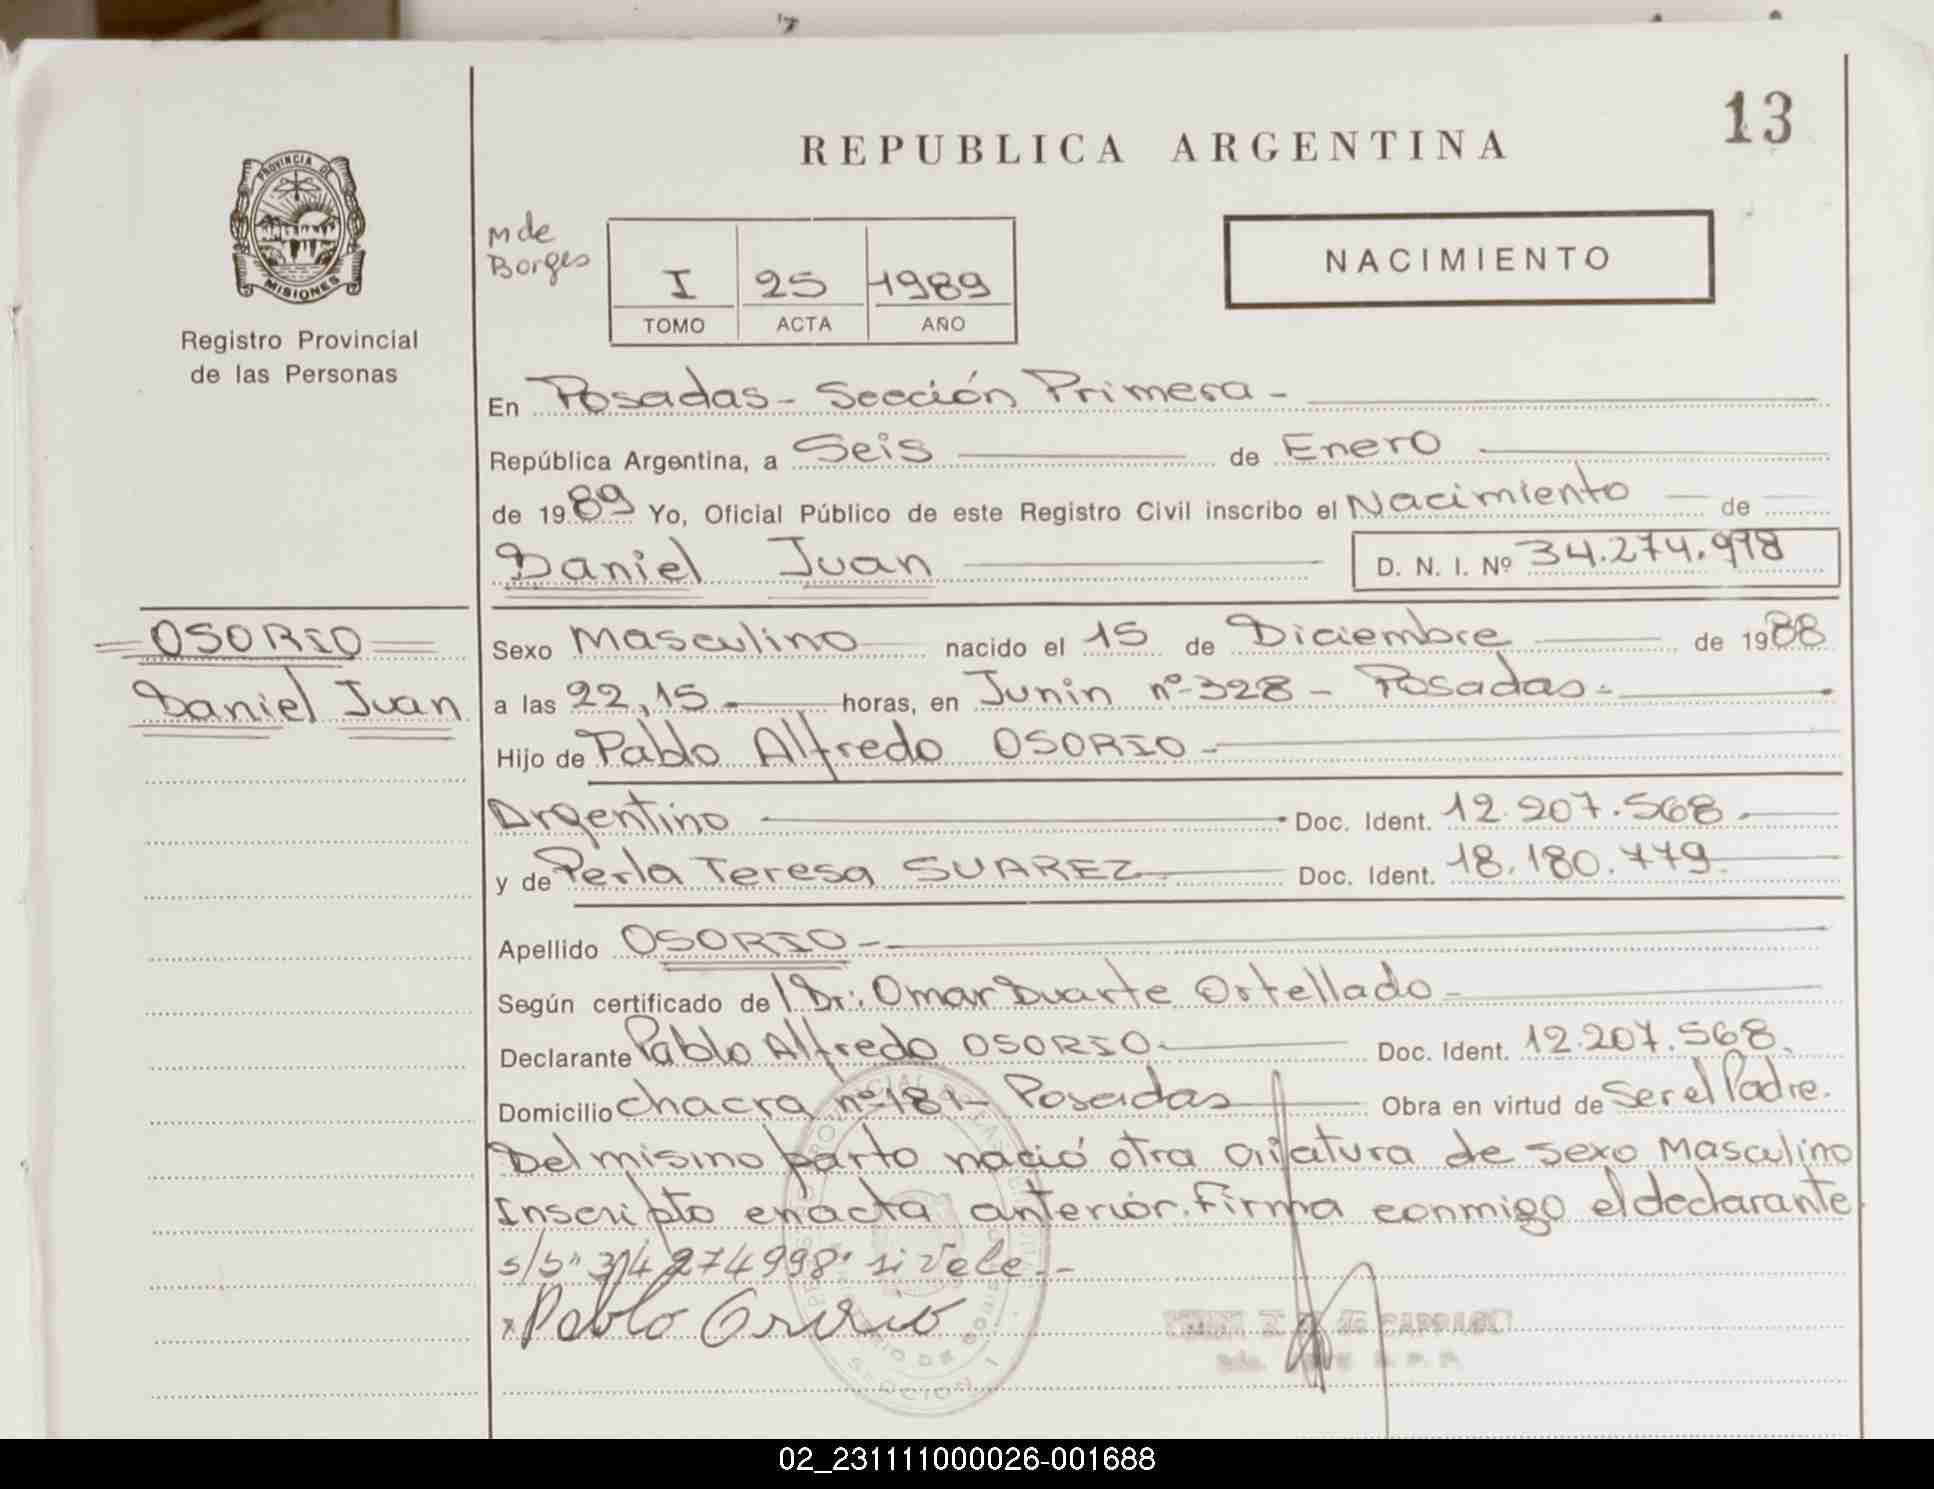 13
REPUBLICA ARGENTINA
PROVINCIA DE
MISIONES
Registro Provincial
de las Personas
M de
Borges
I 25 1989
TOMO ACTA AÑO
NACIMIENTO
En Posadas - Sección Primera -
República Argentina, a Seis de Enero
de 1989 Yo, Oficial Público de este Registro Civil inscribo el Nacimiento de
Daniel Juan D. N. I. Nº 34.274.998
OSORIO
Daniel Juan
Sexo Masculino nacido el 15 de Diciembre de 1988
a las 22,15 horas, en Junin nº 328 - Posadas.
Hijo de Pablo Alfredo OSORIO -
Argentino Doc. Ident. 12.207.568
y de Perla Teresa SUAREZ Doc. Ident. 18.180.779
Apellido OSORIO -
Según certificado del Dr: Omar Duarte Ortellado -
Declarante Pablo Alfredo OSORIO Doc. Ident. 12.207.568.
Domicilio chacra nº 181 - Posadas Obra en virtud de Ser el Padre.
Del mismo parto nació otra criatura de sexo Masculino
Inscripto en acta anterior. Firma conmigo el declarante
s/bº 34 274998. si vale.-
Pablo Osorio
SECCION 1
02_231111000026-001688